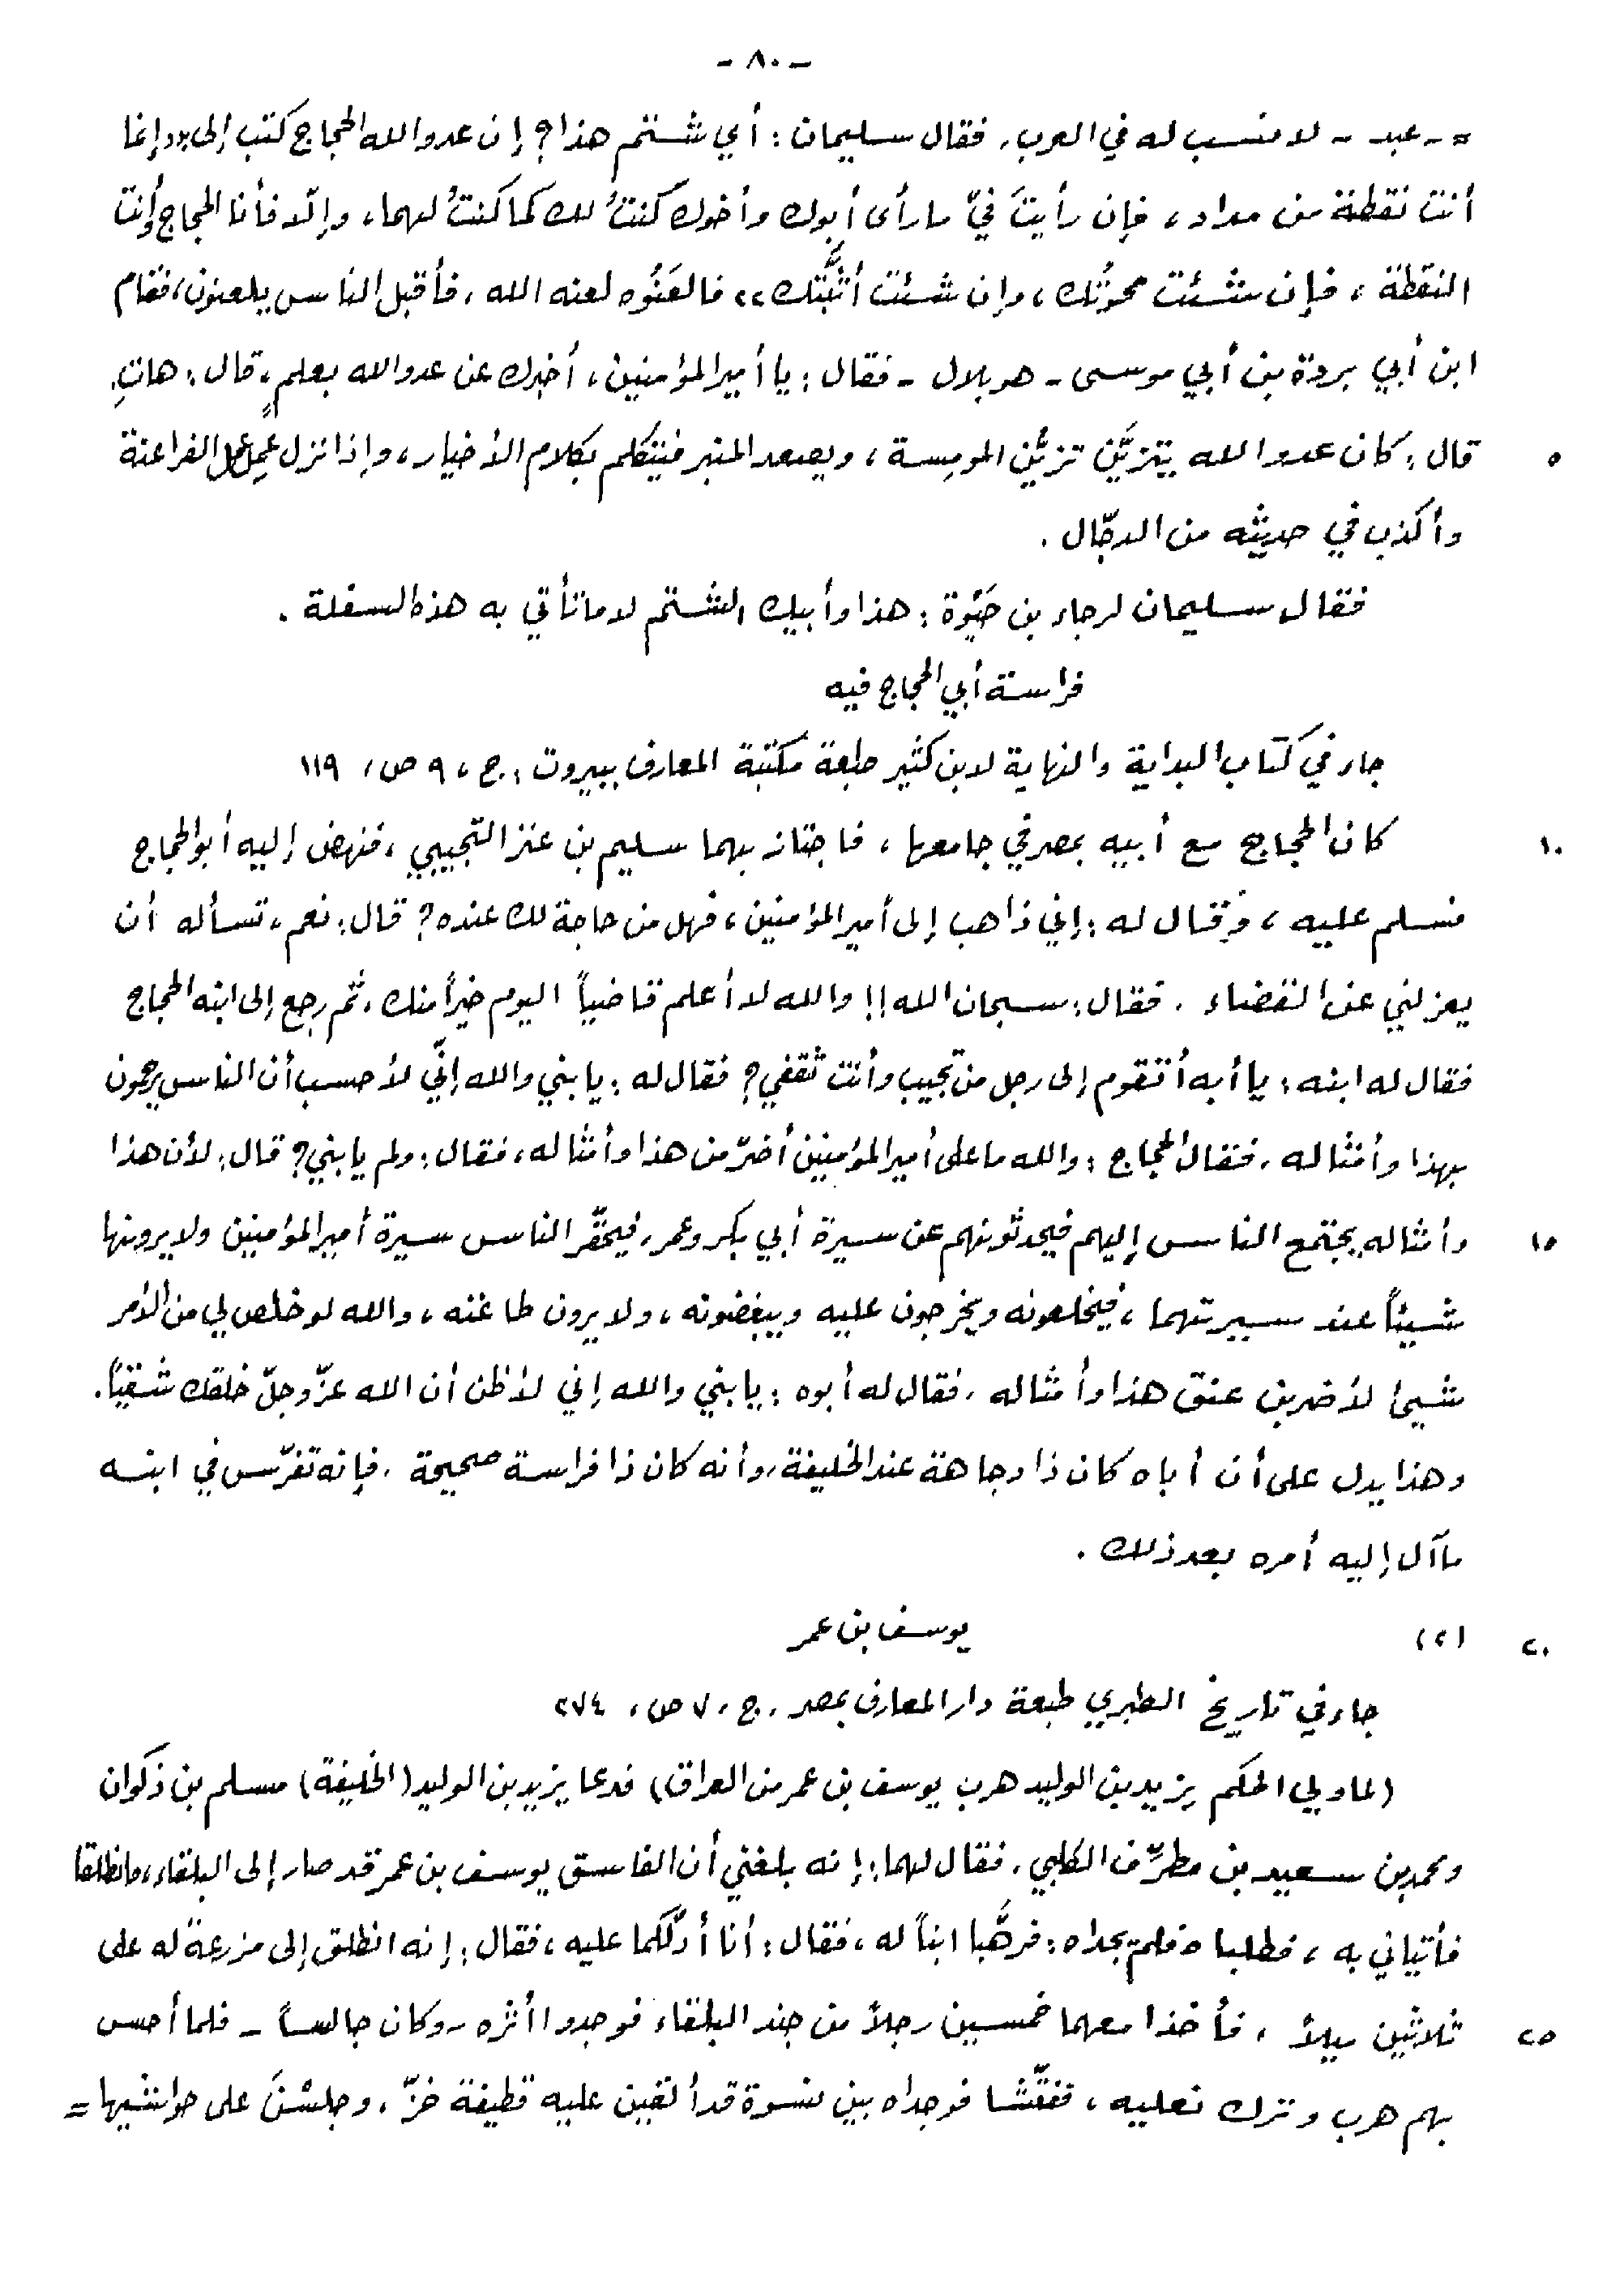 - ٨٠ -
= - عبد - لا منسب له في العرب، فقال سليمان: أي شتم هذا؟ إن عدو الله الحجاج كتب إلي «إنما
أنت نقطة من مداد، فإن رأيتَ فيّ ما رأى أبوك وأخوك كنتُ لك كما كنتُ لهما، وإلّا فأنا الحجاج وأنت
النقطة، فإن شئت محوتُك، وإن شئت أثبَتُّك» فالعَنُوه لعنه الله، فأقبل الناس يلعنون، فقام
ابن أبي بردة بن أبي موسى - هو بلال - فقال: يا أمير المؤمنين، أخبرك عن عدو الله بعلمٍ، قال: هاتِ.
٥ قال: كان عدو الله يتزيَّن تزيُّن المومِسة، ويصعد المنبر فيتكلم بكلام الأخيار، وإذا نزل عَمِل عمل الفراعنة
وأكذب في حديثه من الدجّال.
فقال سليمان لرجاء بن حَيْوة: هذا وأبيك الشتم لا ما تأتي به هذه السفلة.
فراسة أبي الحجاج فيه
جاء في كتاب البداية والنهاية لابن كثير طبعة مكتبة المعارف ببيروت: ج، ٩ ص، ١١٩
١٠ كان الحجاج مع أبيه بمصر في جامعها، فاجتاز بهما سليم بن عنز التجيبي، فنهض إليه أبو الحجاج
فسلم عليه، وقال له: إني ذاهب إلى أمير المؤمنين، فهل من حاجة لك عنده؟ قال: نعم، تسأله أن
يعزلني عن القضاء. فقال: سبحان الله!! والله لا أعلم قاضياً اليوم خيراً منك، ثم رجع إلى ابنه الحجاج
فقال له ابنه: يا أبه أتقوم إلى رجل من تجيب وأنت ثقفي؟ فقال له: يا بني والله إنّي لأحسب أن الناس يرحمون
بهذا وأمثاله، فقال الحجاج: والله ما على أمير المؤمنين أضرّ من هذا وأمثاله، فقال: ولم يا بني؟ قال: لأن هذا
١٥ وأمثاله يجتمع الناس إليهم فيحدثونهم عن سيرة أبي بكر وعمر، فيحقّر الناس سيرة أمير المؤمنين ولا يرونها
شيئاً عند سيرتهما، فيخلعونه ويخرجون عليه ويبغضونه، ولا يرون طاعته، والله لو خلص لي من الأمر
شيئ لأضربن عنق هذا وأمثاله، فقال له أبوه: يا بني والله إني لأظن أن الله عزّ وجلّ خلقك شقيّاً.
وهذا يدل على أن أباه كان ذا وجاهة عند الخليفة، وأنه كان ذا فراسة صحيحة، فإنه تفرّس في ابنه
ما آل إليه أمره بعد ذلك.
٢٠ (٢) يوسف بن عمر
جاء في تاريخ الطبري طبعة دار المعارف بمصر، ج، ٧ ص، ٢٧٤
(لما ولي الحكم يزيد بن الوليد هرب يوسف بن عمر من العراق) فدعا يزيد بن الوليد (الخليفة) مسلم بن ذكوان
ومحمد بن سعيد بن مطرِّف الكلبي، فقال لهما: إنه بلغني أن الفاسق يوسف بن عمر قد صار إلى البلقاء، فانطلقا
فأتياني به، فطلباه فلم يجداه: فرهَّبا ابناً له، فقال: أنا أدلّكما عليه، فقال: إنه انطلق إلى مزرعة له على
٢٥ ثلاثين ميلاً، فأخذا معهما خمسين رجلاً من جند البلقاء فوجدوا أثره - وكان جالساً - فلما أحس
بهم هرب وترك نعليه، ففتّشا فوجداه بين نسوة قد ألقين عليه قطيفة خزّ، وجلسْنَ على حواشيها =